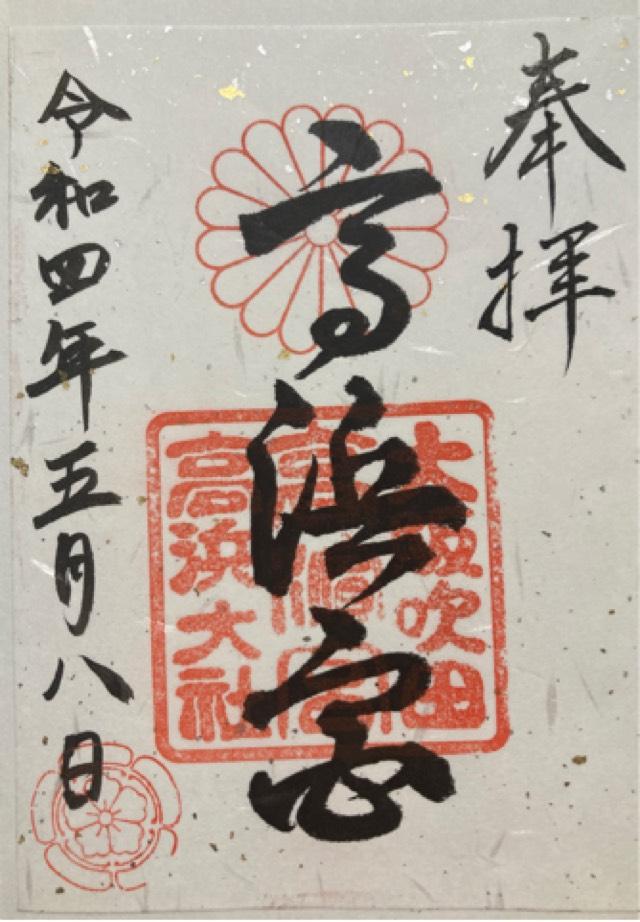 奉拝
高浜宮
大阪吹田
高浜大社
令和四年五月八日